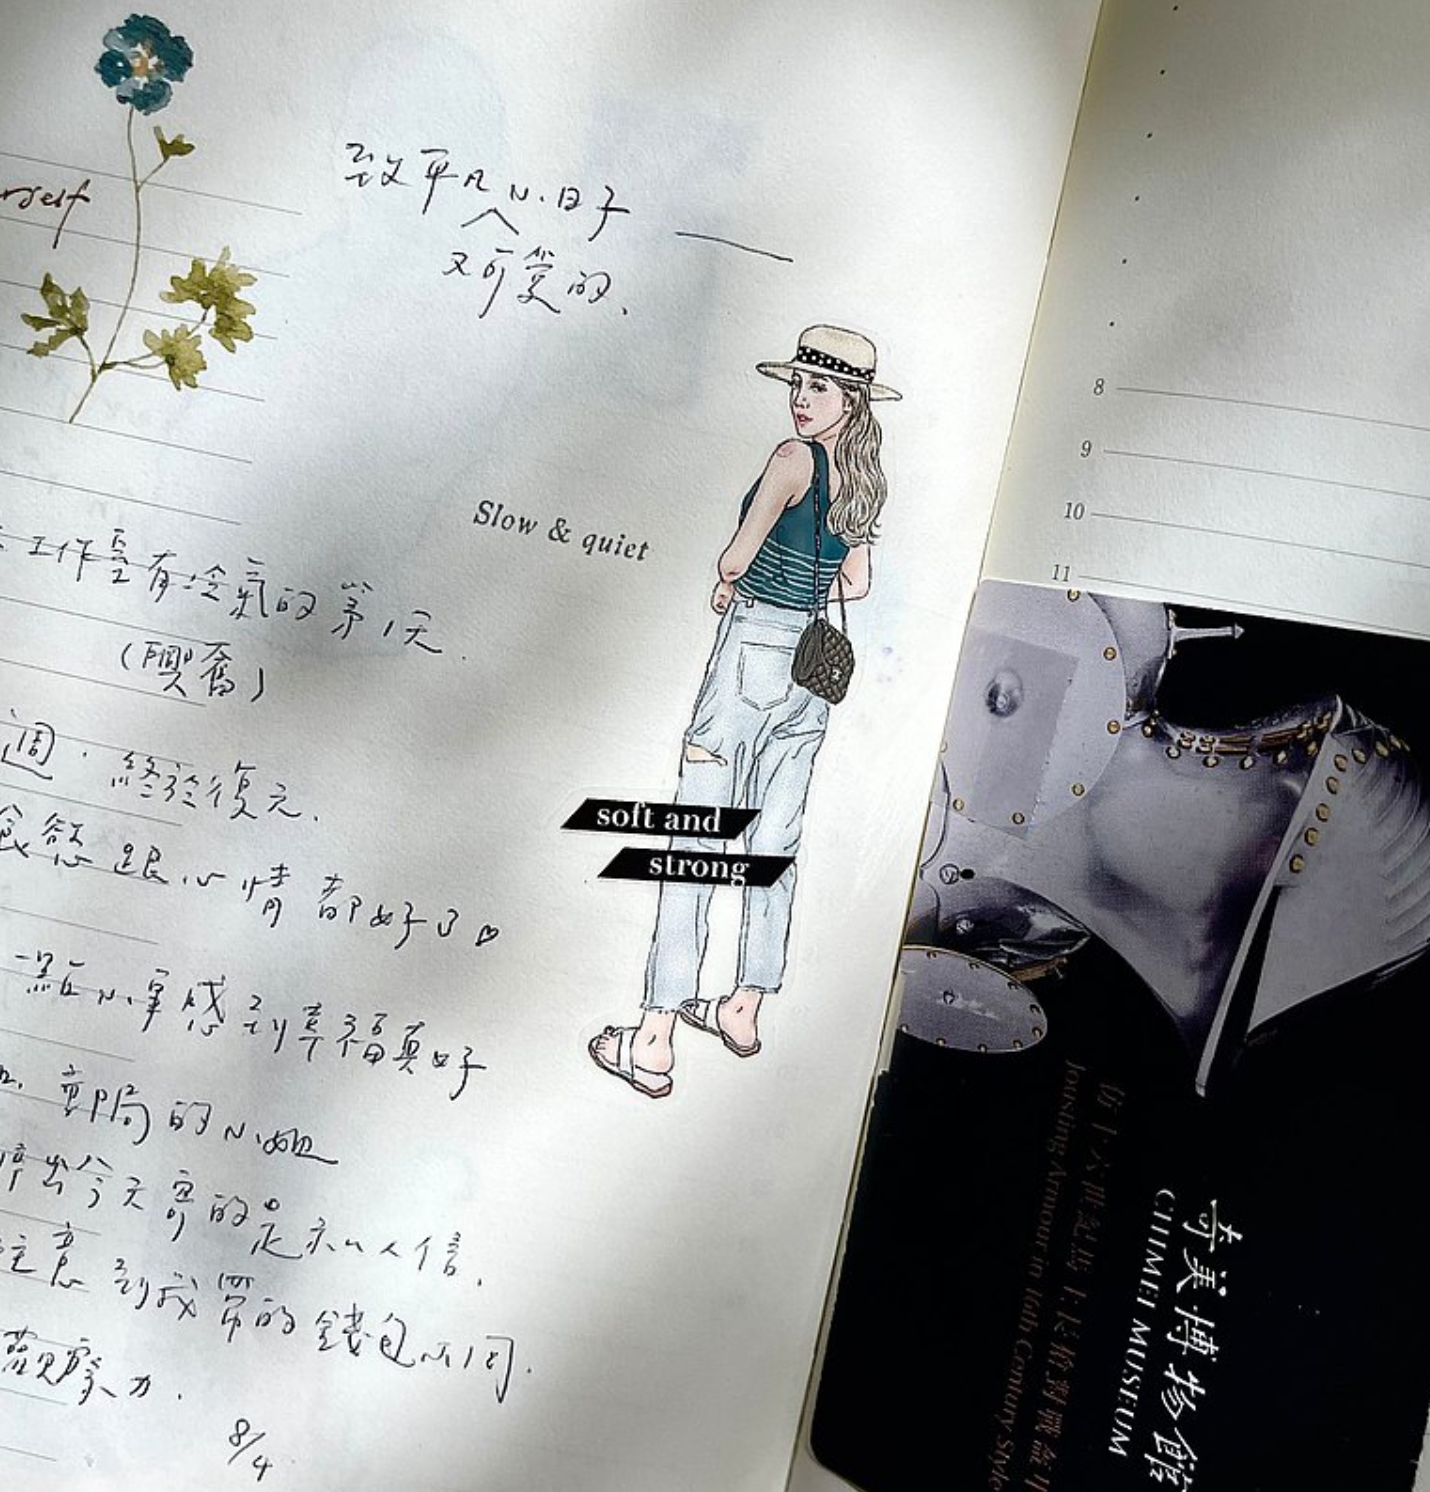 rself
致平凡小日子
又可愛的、
Slow & quiet
工作室有冷氣的第1天.
(興奮)
週. 終於復元.
食慾跟心情都好了♡
一點小事感到幸福真好
郵局的小姐
今天寄的是私人信.
注意到我帶的錢包不同.
觀察力.
8/4
soft and
strong
8
9
10
11
奇美博物館
CHIMEI MUSEUM
仿十六世紀馬上長槍對戰盔甲
Jousting Armour in 16th Century Style